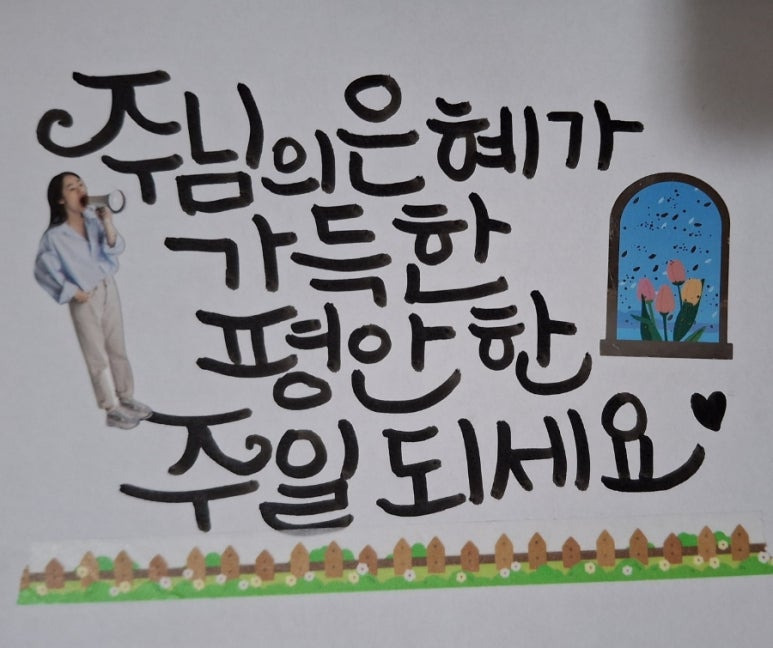 주님의은혜가
가득한
평안한
주일되세요